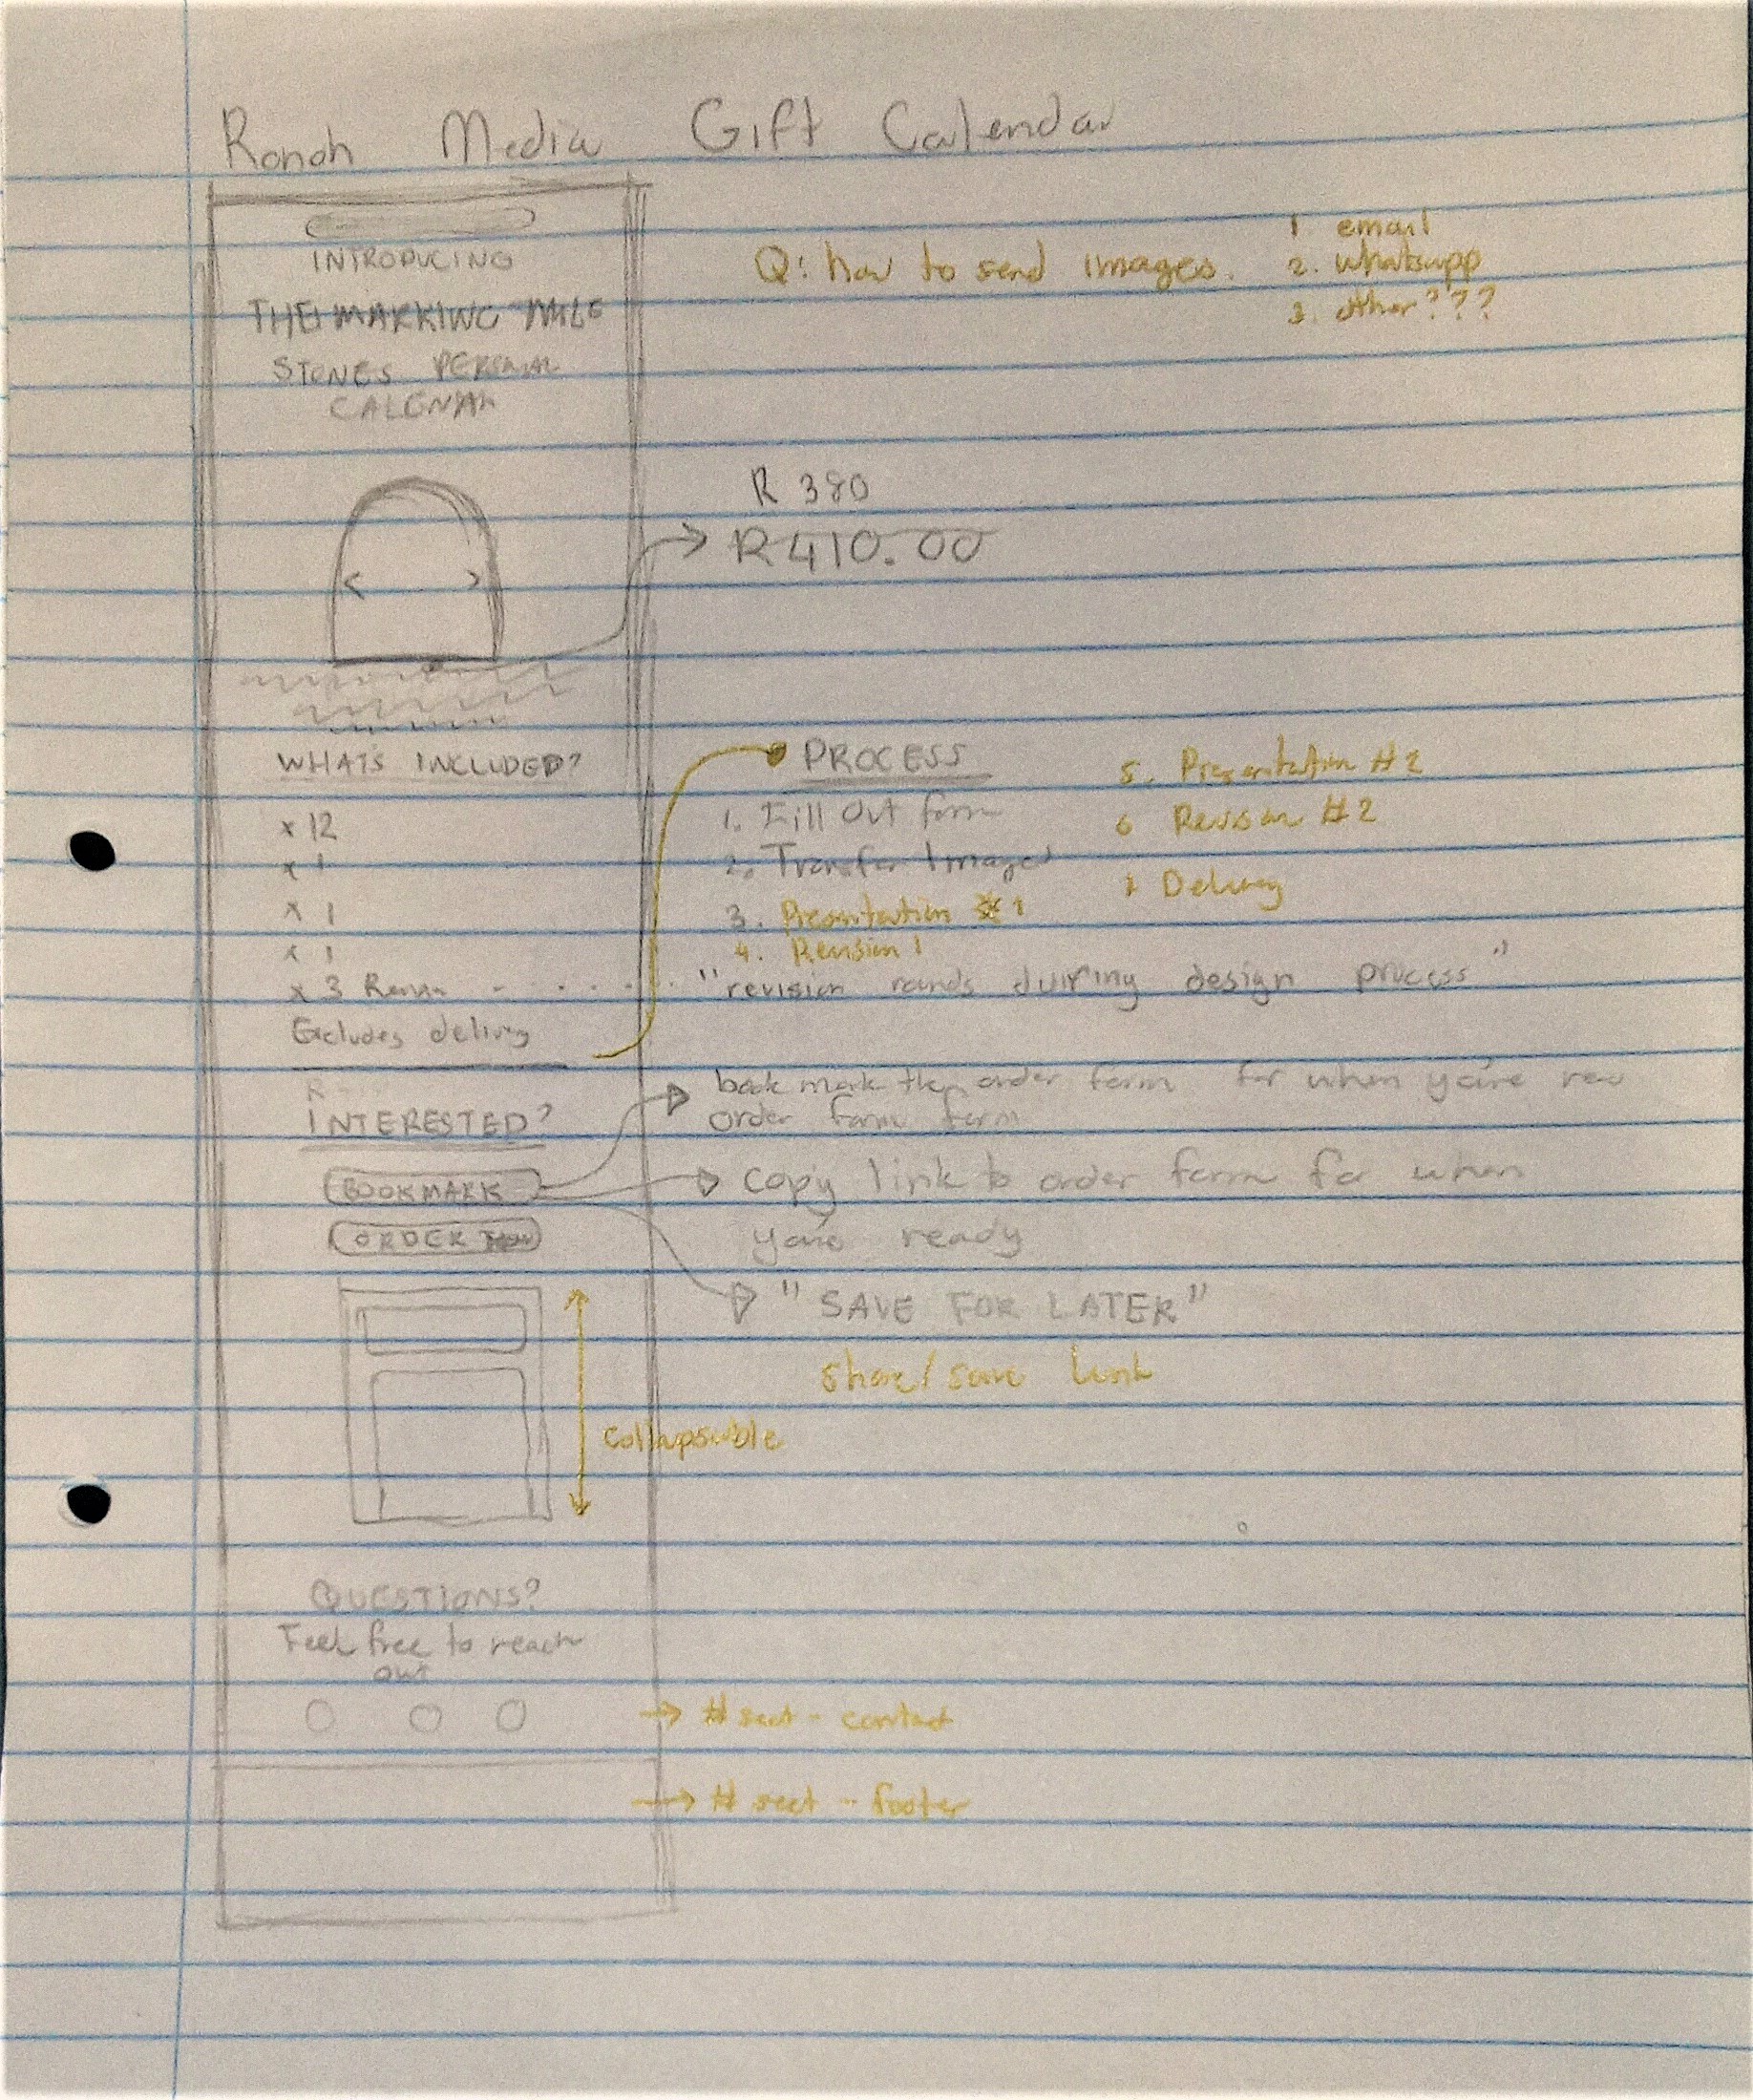 Ronah Media Gift Calendar
INTRODUCING
THE MARKING MILE
STONES PERSONAL
CALENAR
Q: how to send images.
1 email
2. whatsapp
3. other???
R 380
R410.00
WHATS INCLUDED?
x 12
x 1
x 1
x 1
x 3
Excludes delivry
PROCESS
1. Fill Out form
2. Transfer Images
3. Presentation #1
4. Revision 1
5. Presentation #2
6 Revision #2
7 Delivery
"revision rounds during design process"
INTERESTED?
BOOKMARK
ORDER
book mark the order form for when you're
order form form
copy link to order form for when
you're ready
"SAVE FOR LATER"
share/save link
collapsable
QUESTIONS?
Feel free to reach
out
# sect - contact
# sect - footer